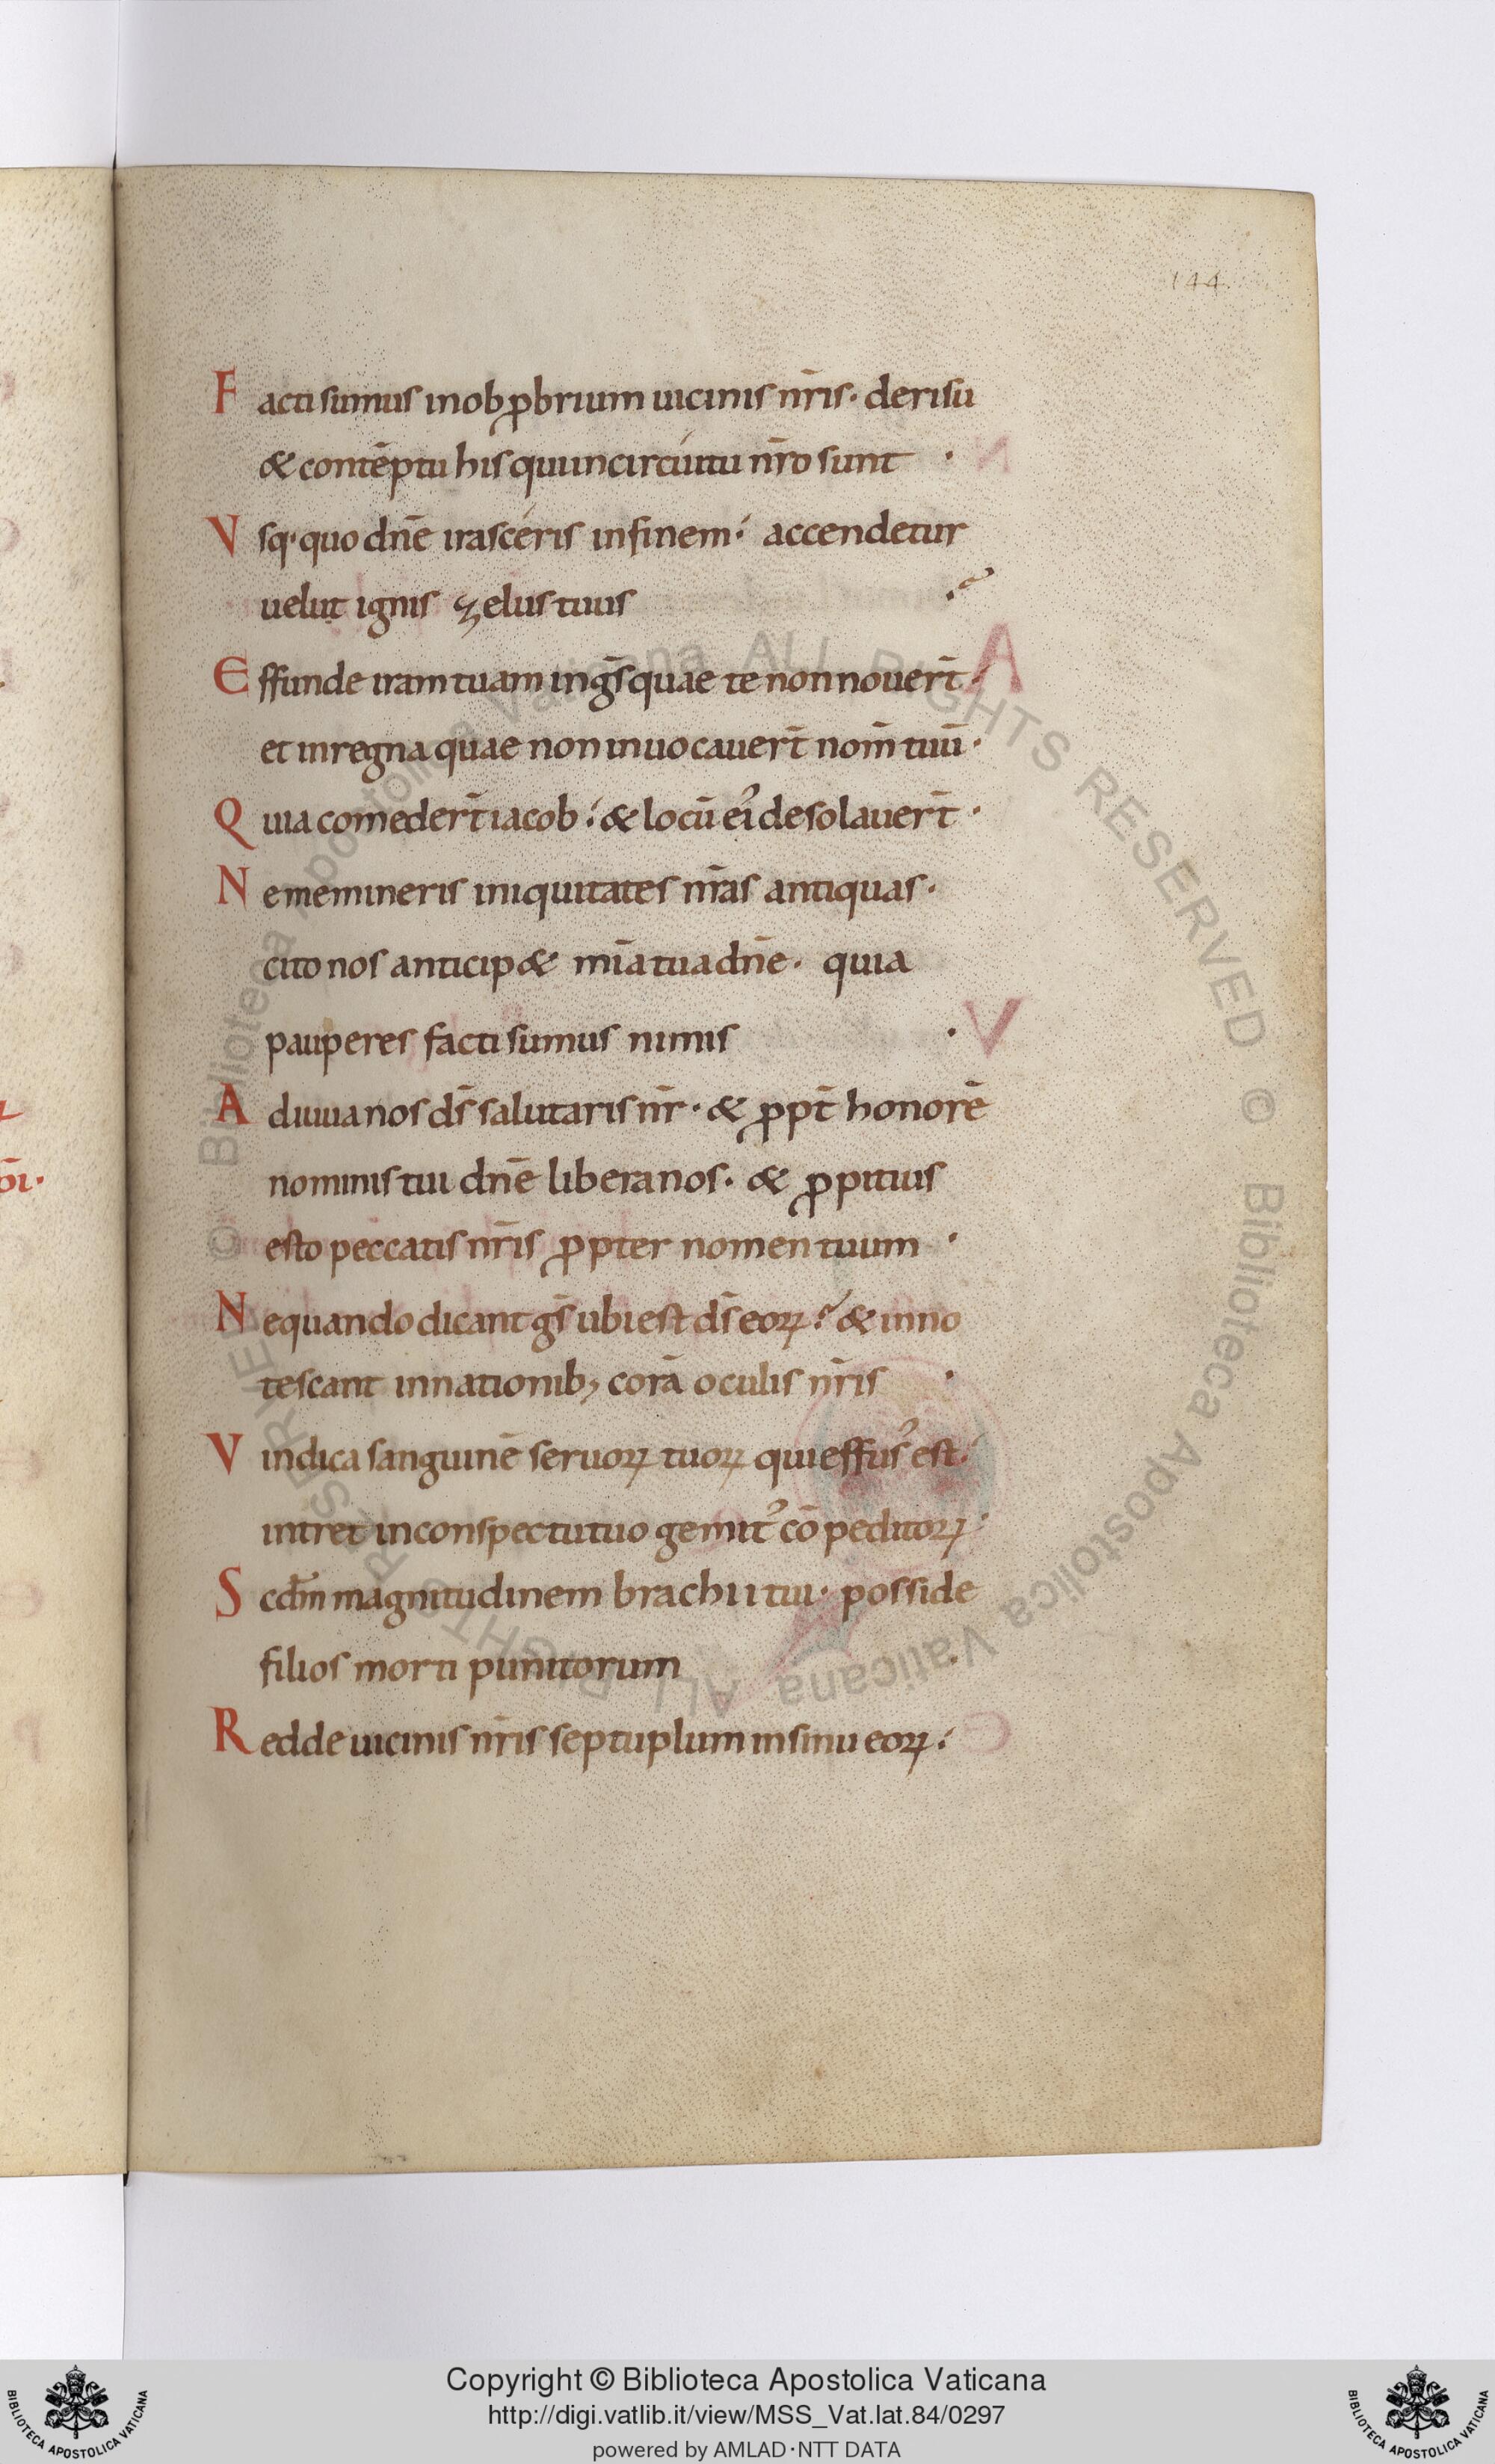 144.
Facti sumus in obꝓbrium uicinis nr̄is· derisu
& contēptu his qui in circúitu nr̄o sunt ·
Vsq· quo dn̄e irascéris in finem؛ accendetur
uelut ignis zelus tuus
Effunde iram tuam in gs̄ quae te non nouert̄·
et in regna quae non inuocauert̄ nom̄ tuū·
Quia comedert̄ iacob؛ & locū ei᾽ desolauert̄ ·
Ne memineris iniquitates nr̄as antiquas·
cito nos anticip& mīa tua dn̄e· quia
pauperes facti sumus nimis ·
Adiuua nos ds̄ salutaris nr̄· & ꝓpt̄ honorē
nominis tui dn̄e libera nos· & ꝓpitius
esto peccatis nr̄is ꝓpter nomen tuum ·
Ne quando dicant gs̄ ubi est ds̄ eoꝝ? & inno
tescant in nationib; corā oculis nr̄is ·
Vindica sanguinē seruoꝝ tuoꝝ qui effus᾽ est·
intret in conspectu tuo gemit᾽ cōpeditoꝝ·
Scdm̄ magnitudinem brachii tui· posside
filios morti punitorum ·
Redde uicinis nr̄is septuplum in sinu eoꝝ؛
© Biblioteca Apostolica Vaticana ALL RIGHTS RESERVED © Biblioteca Apostolica Vaticana ALL RIGHTS RESERVED
BIBLIOTECA APOSTOLICA VATICANA
Copyright © Biblioteca Apostolica Vaticana
http://digi.vatlib.it/view/MSS_Vat.lat.84/0297
powered by AMLAD·NTT DATA
BIBLIOTECA APOSTOLICA VATICANA